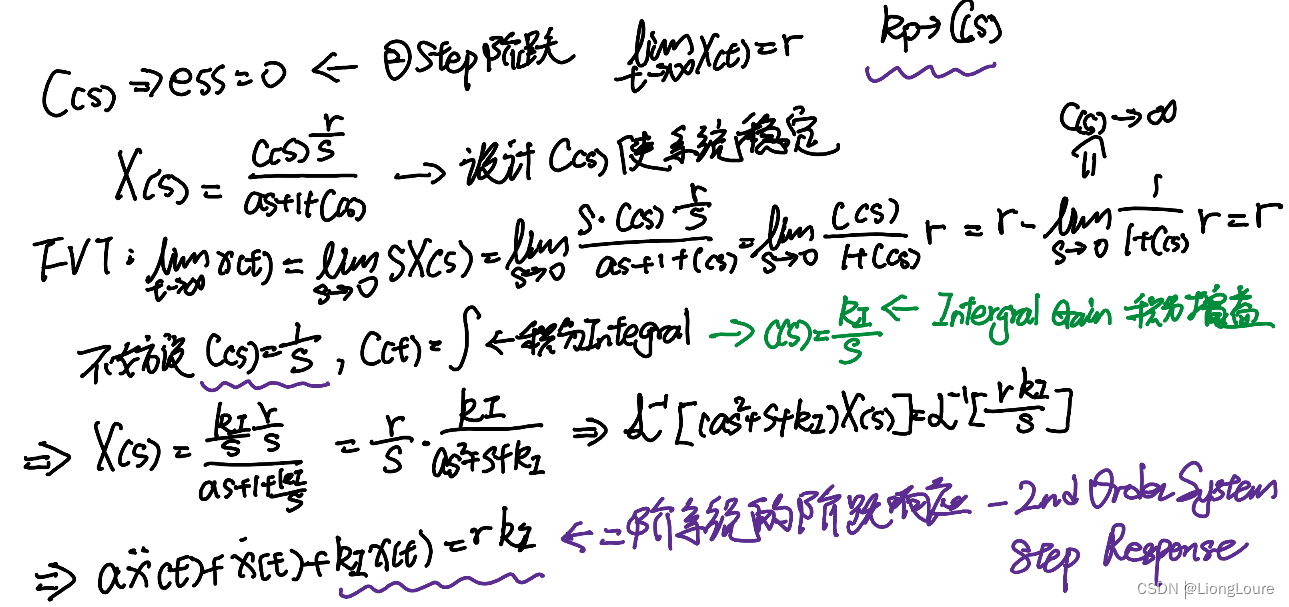 C(s) ⇒ ess = 0 ← ② Step 阶跃 lim t→∞ x(t) = r kp → C(s)
C(s) → ∞
X(s) = (C(s) r/s) / (as+1+C(s)) → 设计 C(s) 使系统稳定
FVT: lim t→∞ x(t) = lim s→0 sX(s) = lim s→0 (s·C(s) r/s) / (as+1+C(s)) = lim s→0 C(s)/(1+C(s)) r = r - lim s→0 1/(1+C(s)) r = r
不妨设 C(s) = 1/s , C(t) = ∫ ← 积分 Integral → C(s) = kI/s ← Intergral Gain 积分增益
⇒ X(s) = (kI/s r/s) / (as+1+kI/s) = r/s · kI/(as²+s+kI) ⇒ L⁻¹[(as²+s+kI)X(s)] = L⁻¹[r kI/s]
⇒ aẍ(t)+ẋ(t)+kI x(t) = r kI ← 二阶系统的阶跃响应 - 2nd Order System
Step Response
CSDN @LiongLoure